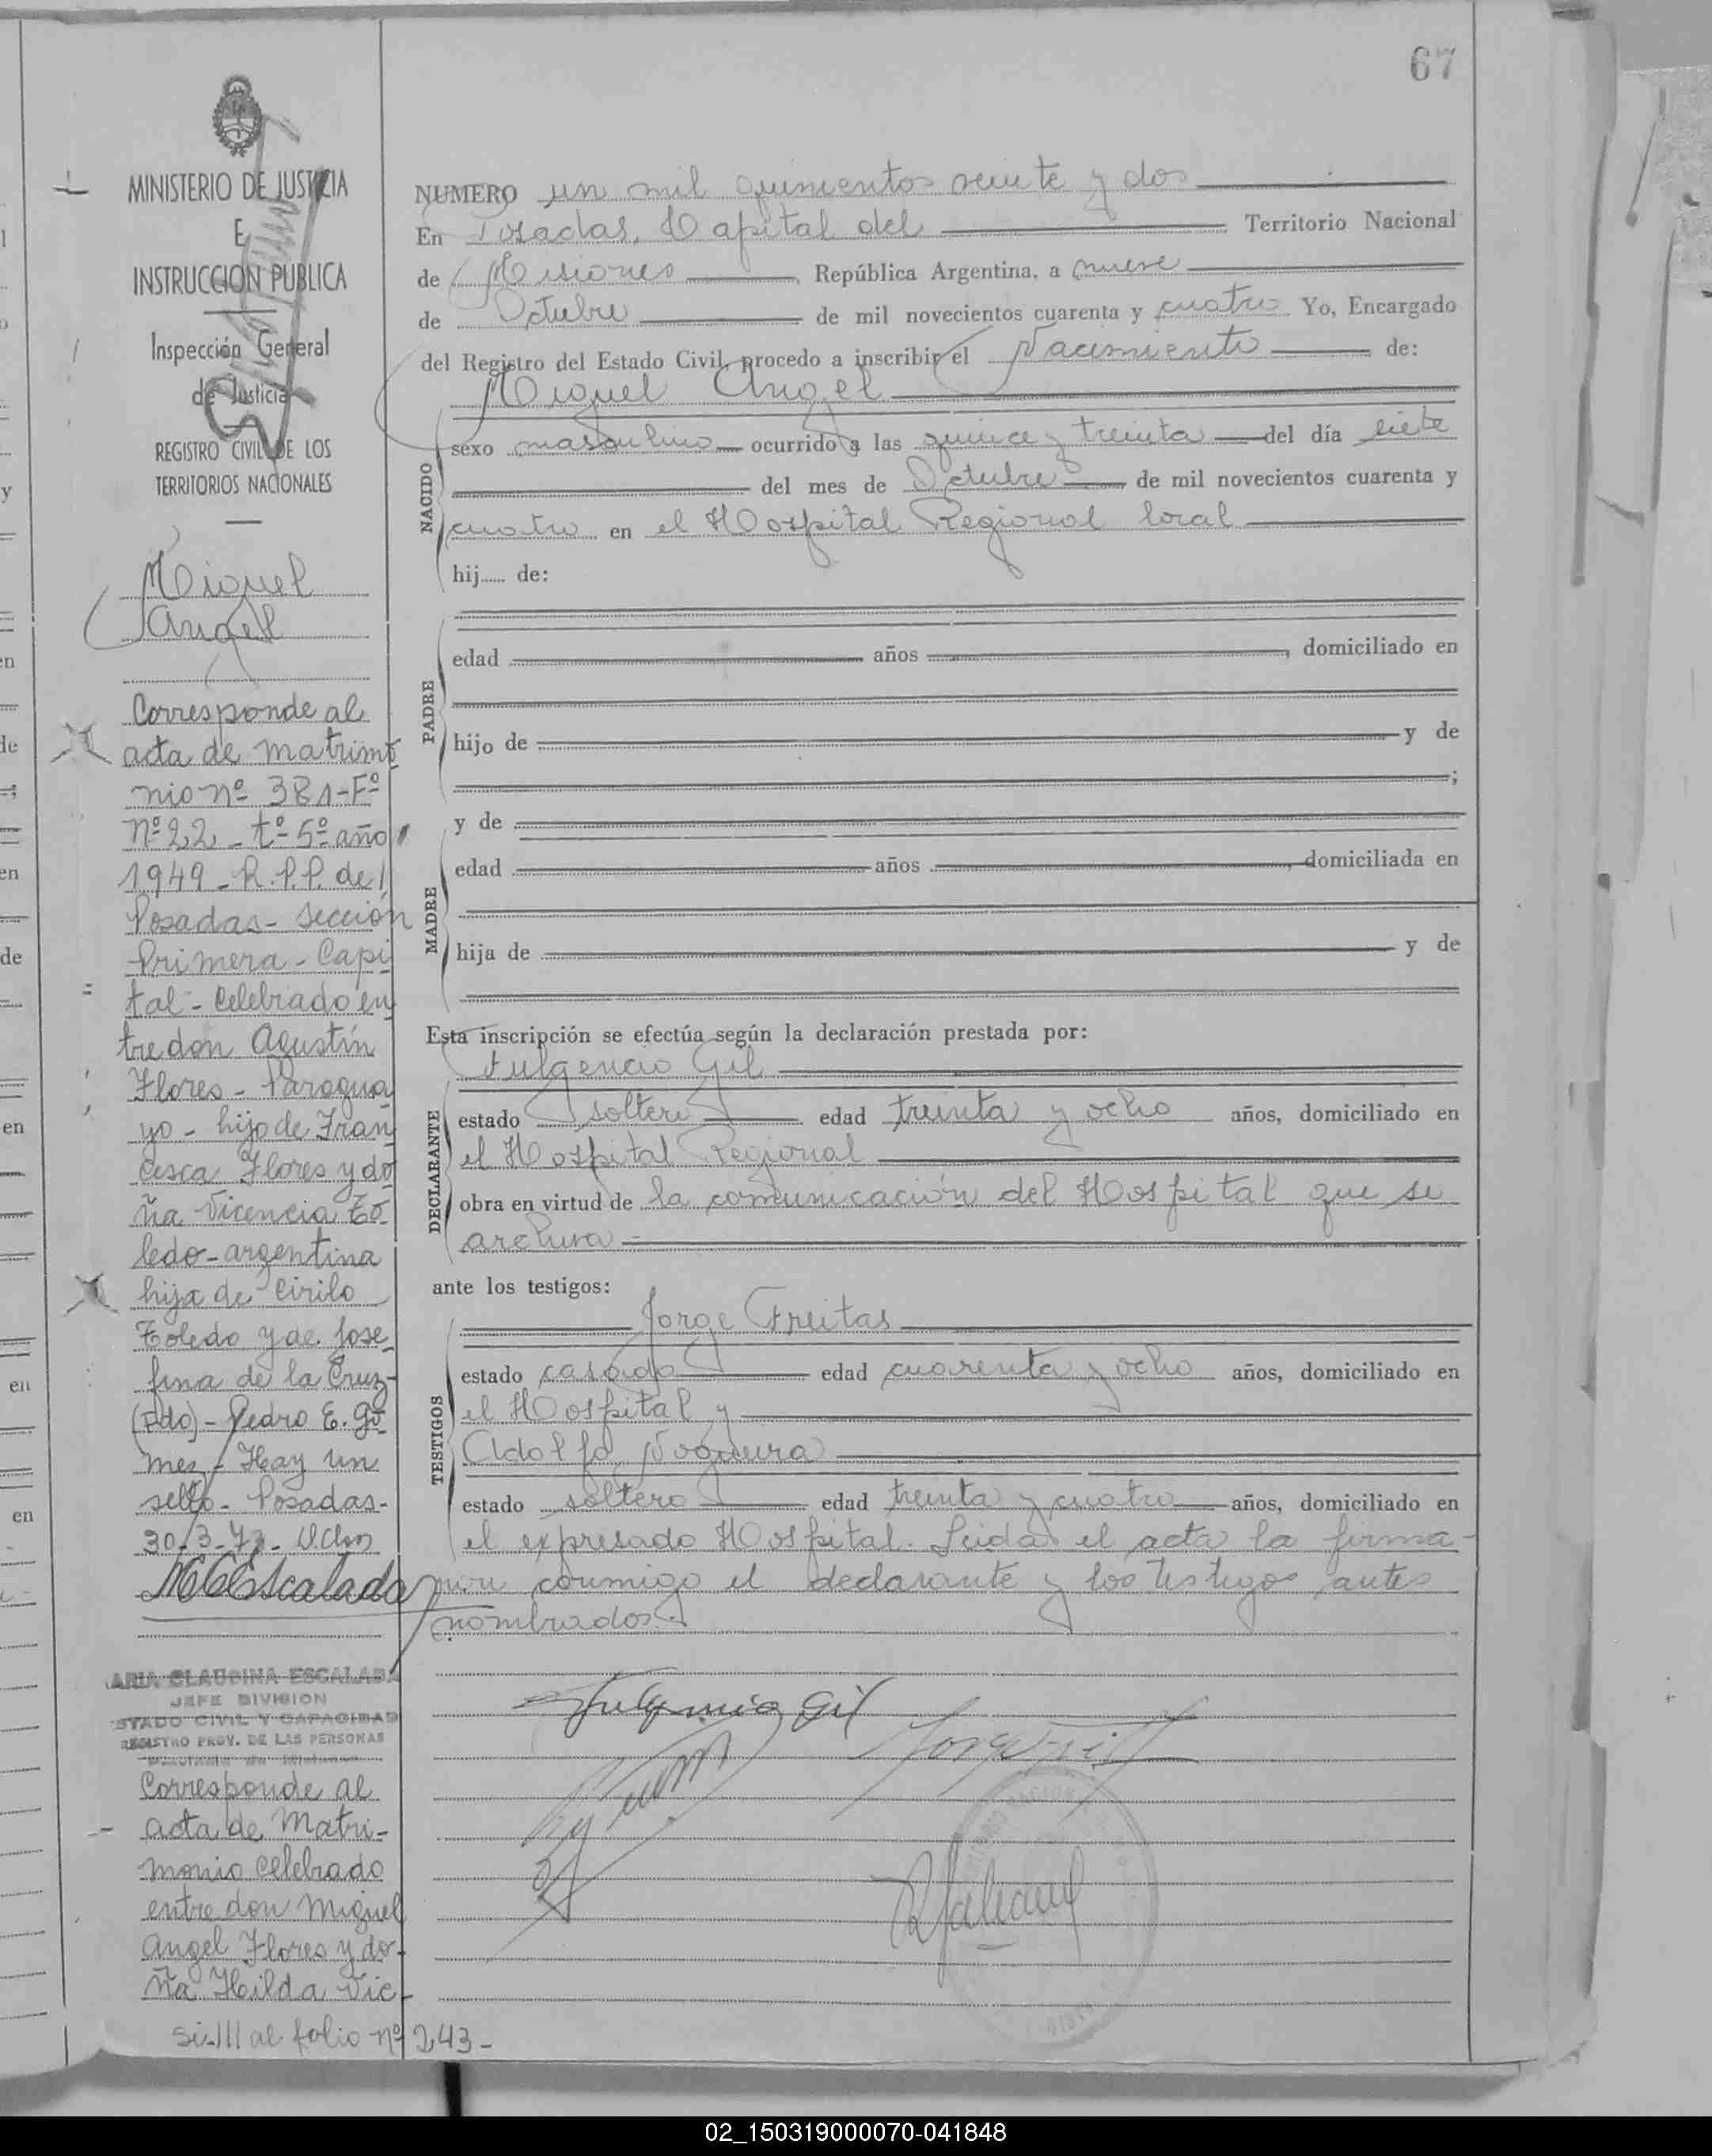 67
MINISTERIO DE JUSTICIA
E
INSTRUCCION PUBLICA
Inspección General
de Justicia
REGISTRO CIVIL DE LOS
TERRITORIOS NACIONALES
Miguel
Angel
Corresponde al
acta de matrimo
nio nº 381-Fº
nº 22 - tº 5º año
1949 - R.P.P. de
Posadas - Sección
Primera - Capi
tal - Celebrado en
tre don Agustín
Flores - Paragua
yo - hijo de Fran
cisca Flores y do
ña Vicencia To
ledo - argentina
hija de Cirilo
Toledo y de Jose
fina de la Cruz -
(Fdo) - Pedro E. Gó
mez - Hay un
sello - Posadas -
30-3-73 -
MCEscalada
ARIA CLAUDINA ESCALADA
JEFE DIVISION
STADO CIVIL Y CAPACIDAD
REGISTRO PROV. DE LAS PERSONAS
Provincia de Misiones
Corresponde al
acta de Matri-
monio celebrado
entre don Miguel
Angel Flores y do-
ña Hilda Vic-
si-/// al folio nº 243 -
NUMERO un mil quinientos veinte y dos
En Posadas, Capital del Territorio Nacional
de Misiones, República Argentina, a nueve
de Octubre de mil novecientos cuarenta y cuatro Yo, Encargado
del Registro del Estado Civil, procedo a inscribir el Nacimiento de:
Miguel Angel
NACIDO
sexo masculino ocurrido a las quince y treinta del día siete
del mes de Octubre de mil novecientos cuarenta y
cuatro en el Hospital Regional local
hij..... de:
PADRE
edad años , domiciliado en
hijo de y de
;
y de
MADRE
edad años , domiciliada en
hija de y de
Esta inscripción se efectúa según la declaración prestada por:
Fulgencio Gil
DECLARANTE
estado soltero edad treinta y ocho años, domiciliado en
el Hospital Regional
obra en virtud de la comunicación del Hospital que se
archiva -
ante los testigos:
Jorge Freitas
TESTIGOS
estado casado edad cuarenta y ocho años, domiciliado en
el Hospital y
Adolfo Nogueira
estado soltero edad treinta y cuatro años, domiciliado en
el expresado Hospital. Leida el acta la firma-
ron conmigo el declarante y los testigos antes
nombrados.
Fulgencio Gil
02_150319000070-041848